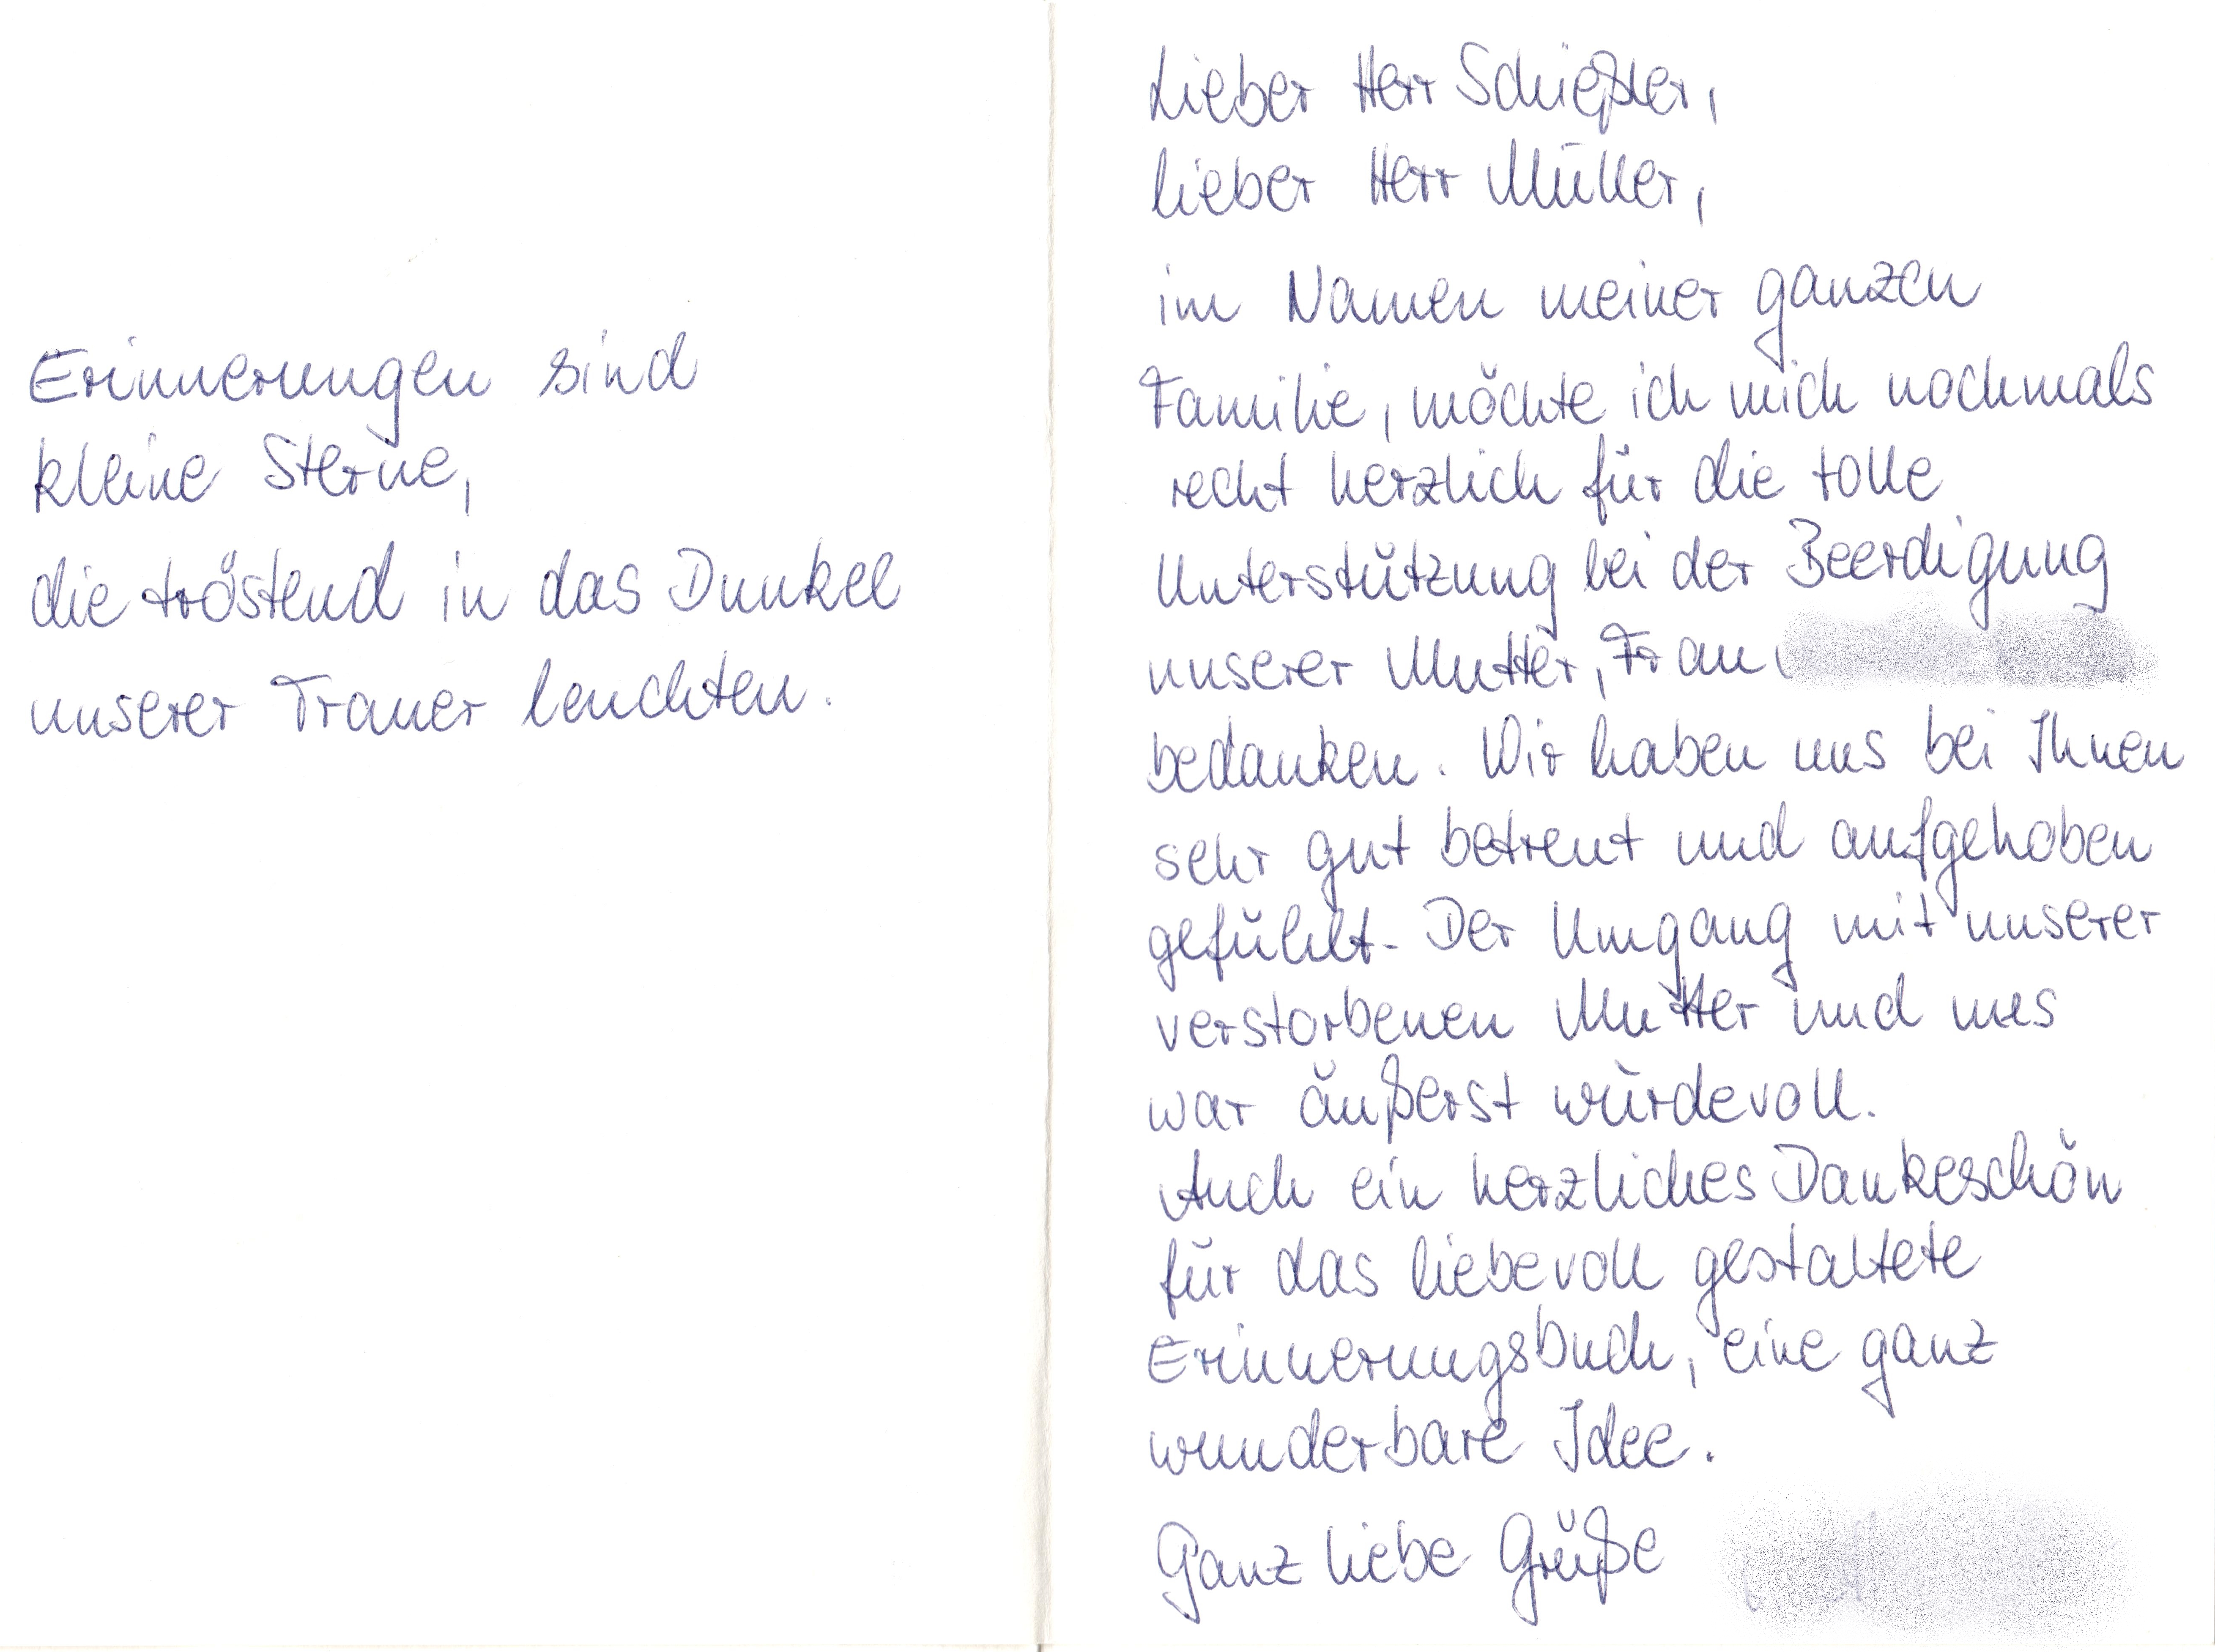 Erinnerungen sind
kleine Sterne,
die tröstend in das Dunkel
unserer Trauer leuchten.
Lieber Herr Schießler,
lieber Herr Müller,
im Namen meiner ganzen
Familie, möchte ich mich nochmals
recht herzlich für die tolle
Unterstützung bei der Beerdigung
unserer Mutter, Frau
bedanken. Wir haben uns bei Ihnen
sehr gut betreut und aufgehoben
gefühlt. Der Umgang mit unserer
verstorbenen Mutter und uns
war äußerst würdevoll.
Auch ein herzliches Dankeschön
für das liebevoll gestaltete
Erinnerungsbuch, eine ganz
wunderbare Idee.
Ganz liebe Grüße